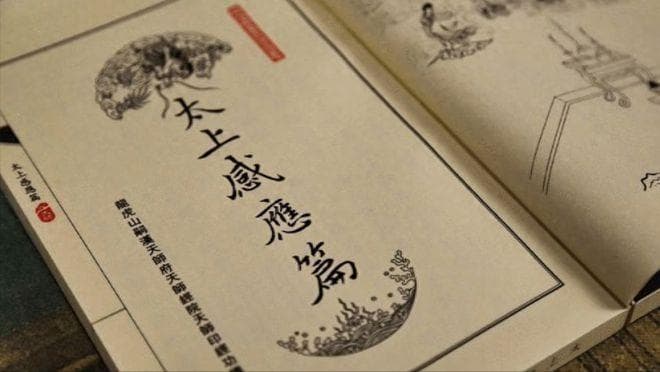 太上感應篇
龍虎山嗣漢天師府天師經院天師印經功
太上感應篇